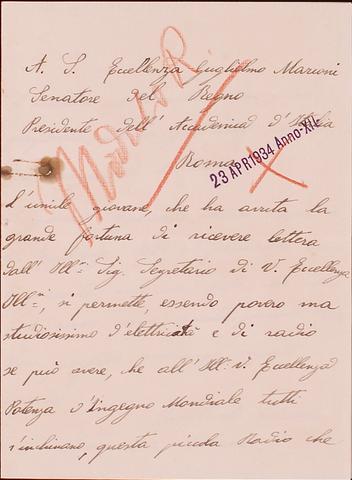 A. S. Eccellenza Guglielmo Marconi
Senatore del Regno
Presidente dell' Accademica d'Italia
Roma
23 APR 1934 Anno-XII
L'umile giovane, che ha avuta la
grande fortuna di ricevere lettera
dall' Ill.mo Sig. Segretario di V. Eccellenza
Ill.ma, si permette, essendo povero ma
studiosissimo d'elettricità e di radio
se può avere, che all' Ill. V. Eccellenza
Potenza d'Ingegno Mondiale tutti
s'inchinano, questa piccola Radio che